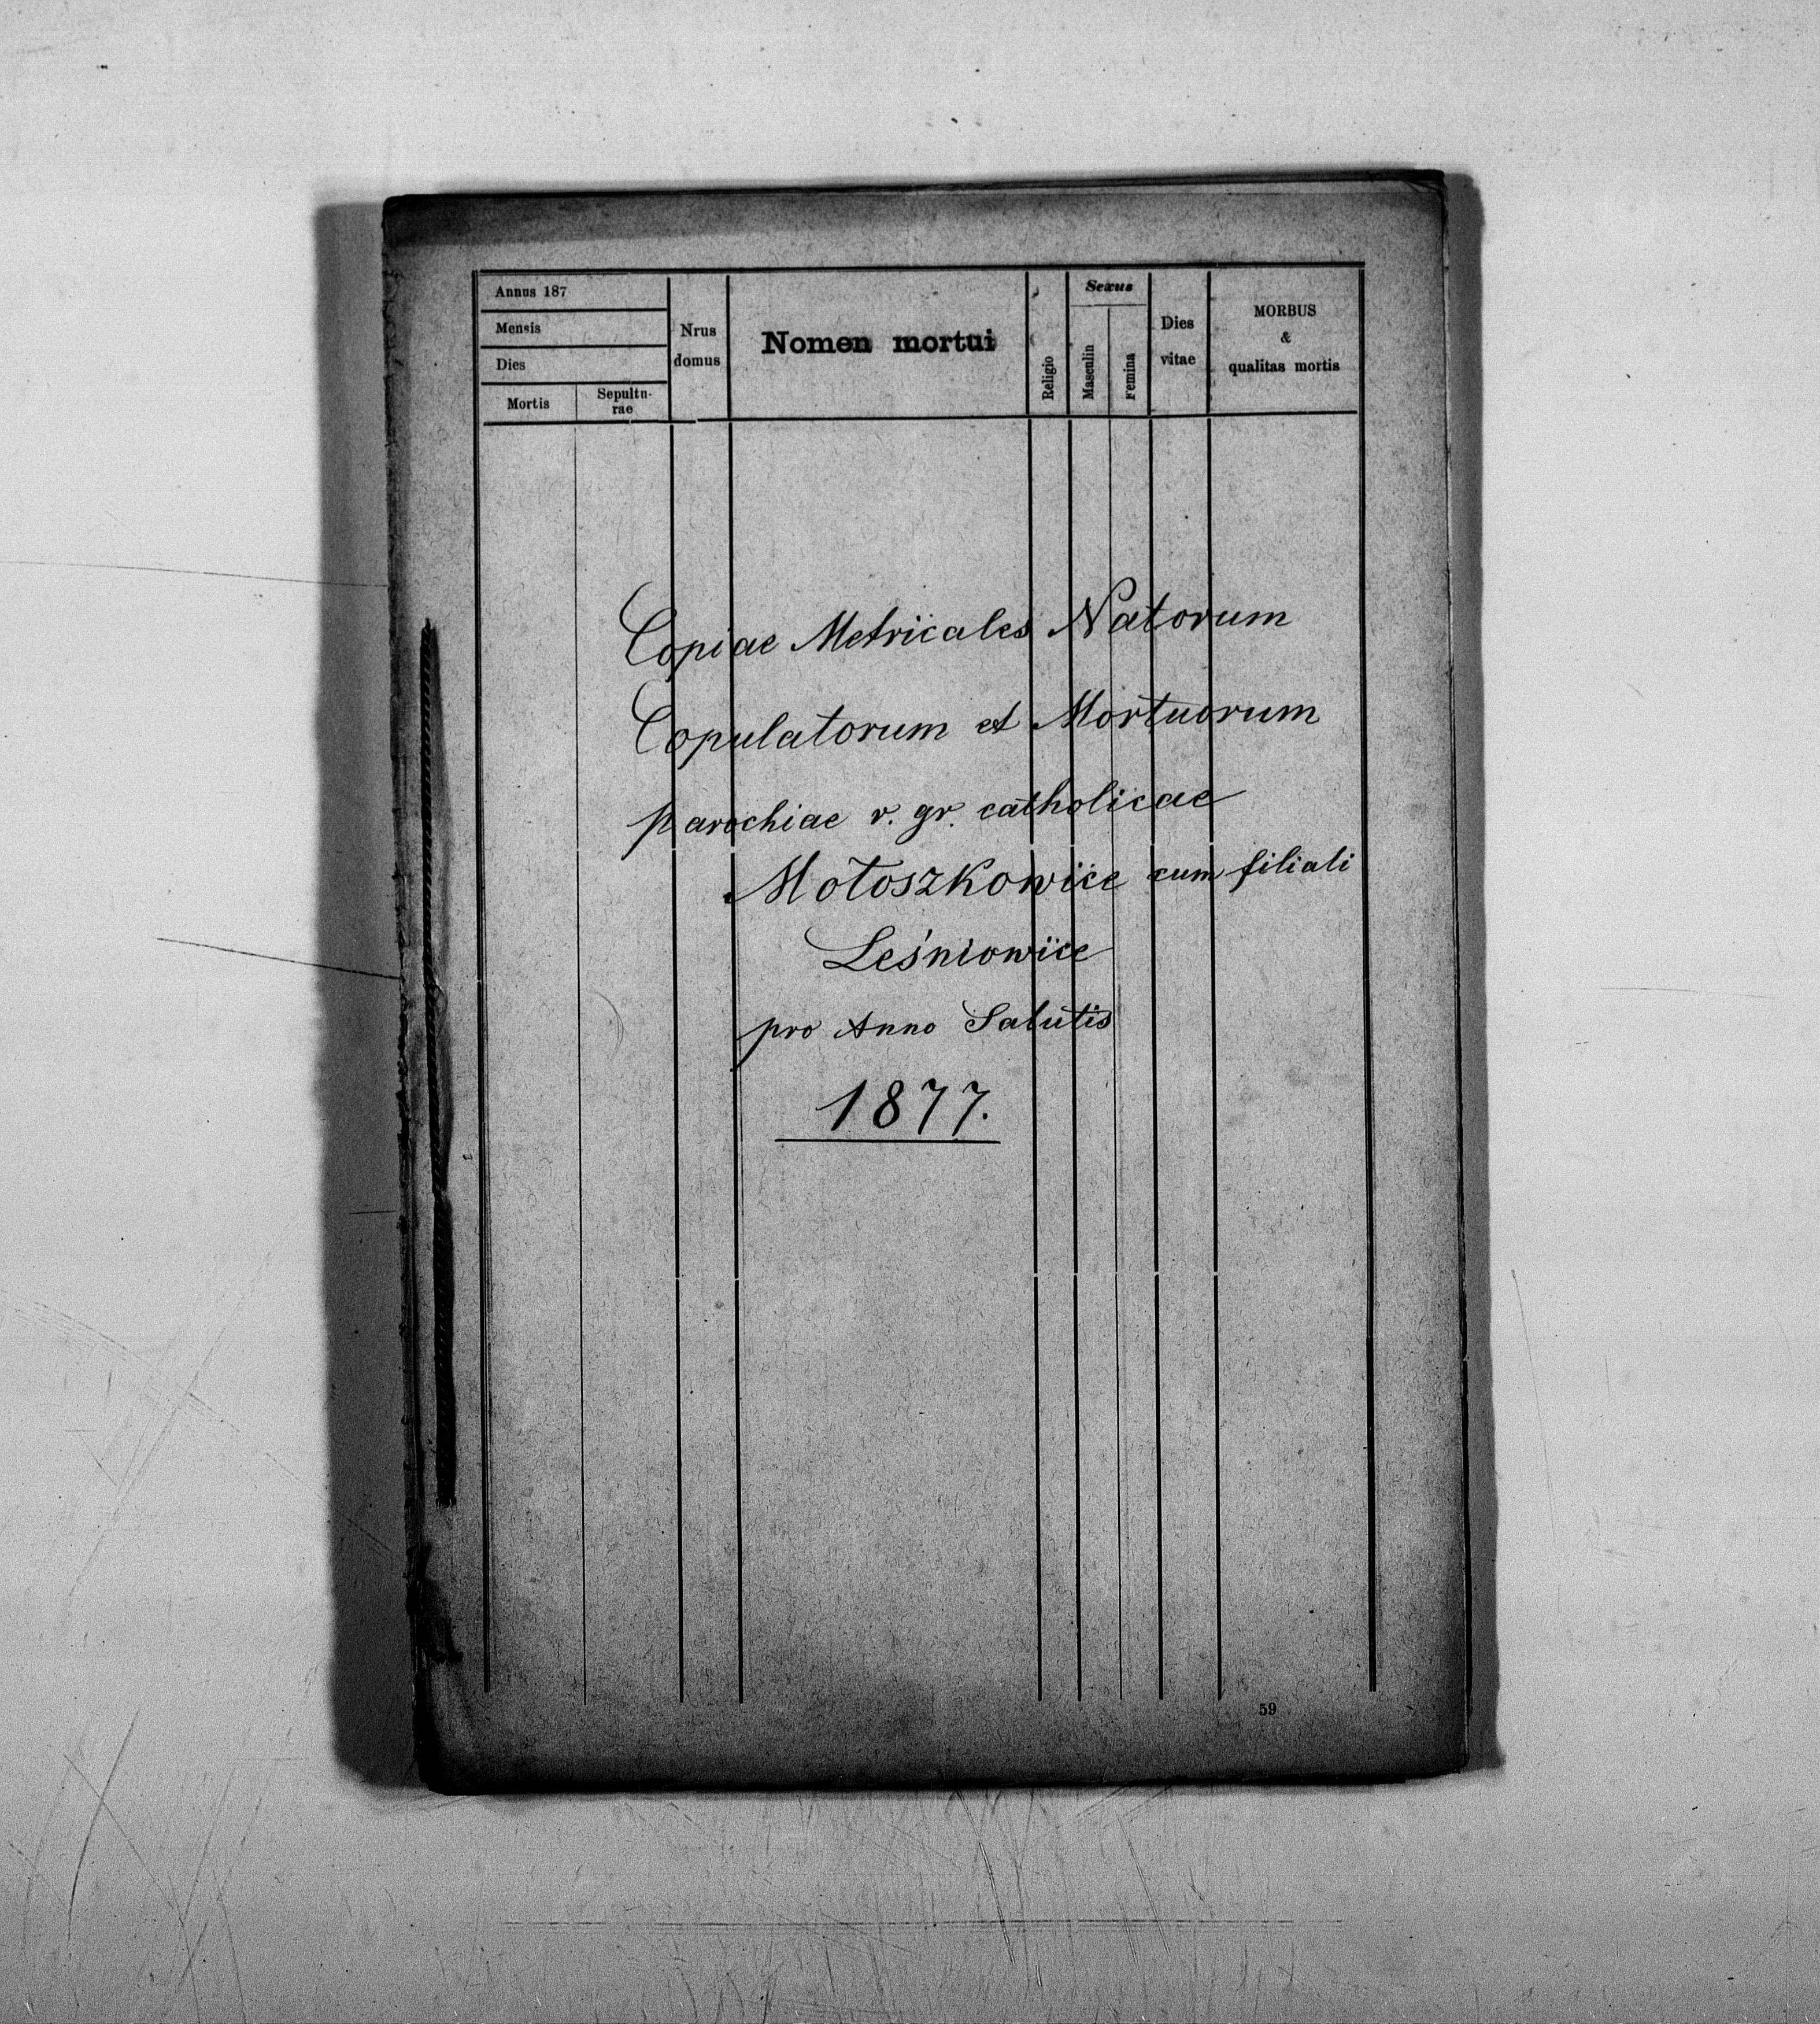 Annus 187
Mensis
Dies
Mortis
Sepultu-
rae
Nrus
domus
Nomen mortui
Religio
Sexus
Masculin
Femina
Dies
vitae
MORBUS
&
qualitas mortis
Copiae Metricales Natorum
Copulatorum et Mortuorum
parochiae r. gr. catholicae
Mołoszkowice cum filiali
Leśniowice
pro Anno Salutis
1877.
59